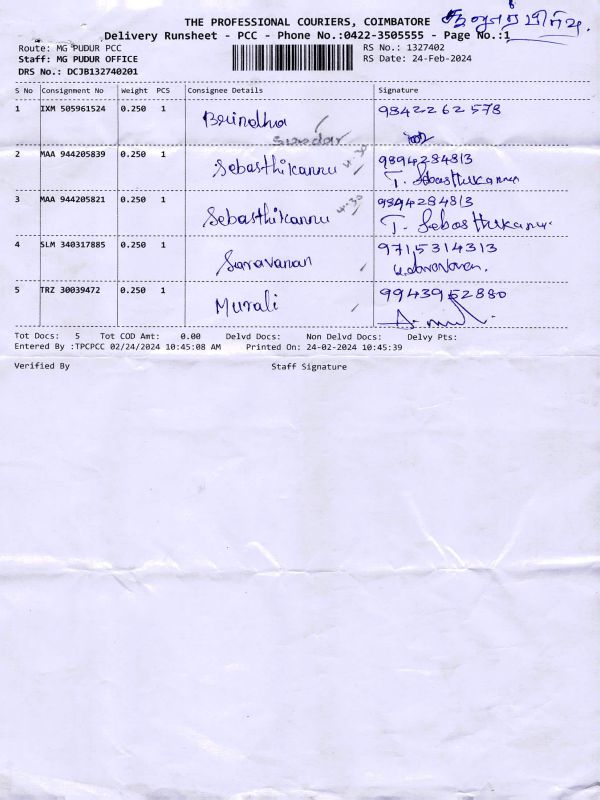 THE PROFESSIONAL COURIERS, COIMBATORE
Delivery Runsheet - PCC - Phone No.:0422-3505555 - Page No.:1
Route: MG PUDUR PCC RS No.: 1327402
Staff: MG PUDUR OFFICE RS Date: 24-Feb-2024
DRS No.: DCJB132740201
S No Consignment No Weight PCS Consignee Details Signature
1 IXM 505961524 0.250 1 Brindha 9842262578
Sunday
2 MAA 944205839 0.250 1 Sebasthikannu 4.30 9894284813
T. Sebasthikannu
3 MAA 944205821 0.250 1 Sebasthikannu 4.30 9894284813
T. Sebasthikannu
4 SLM 340317885 0.250 1 Saravanan 9715314313
5 TRZ 30039472 0.250 1 Murali 9943952880
Tot Docs: 5 Tot COD Amt: 0.00 Delvd Docs: Non Delvd Docs: Delvy Pts:
Entered By :TPCPCC 02/24/2024 10:45:08 AM Printed On: 24-02-2024 10:45:39
Verified By Staff Signature